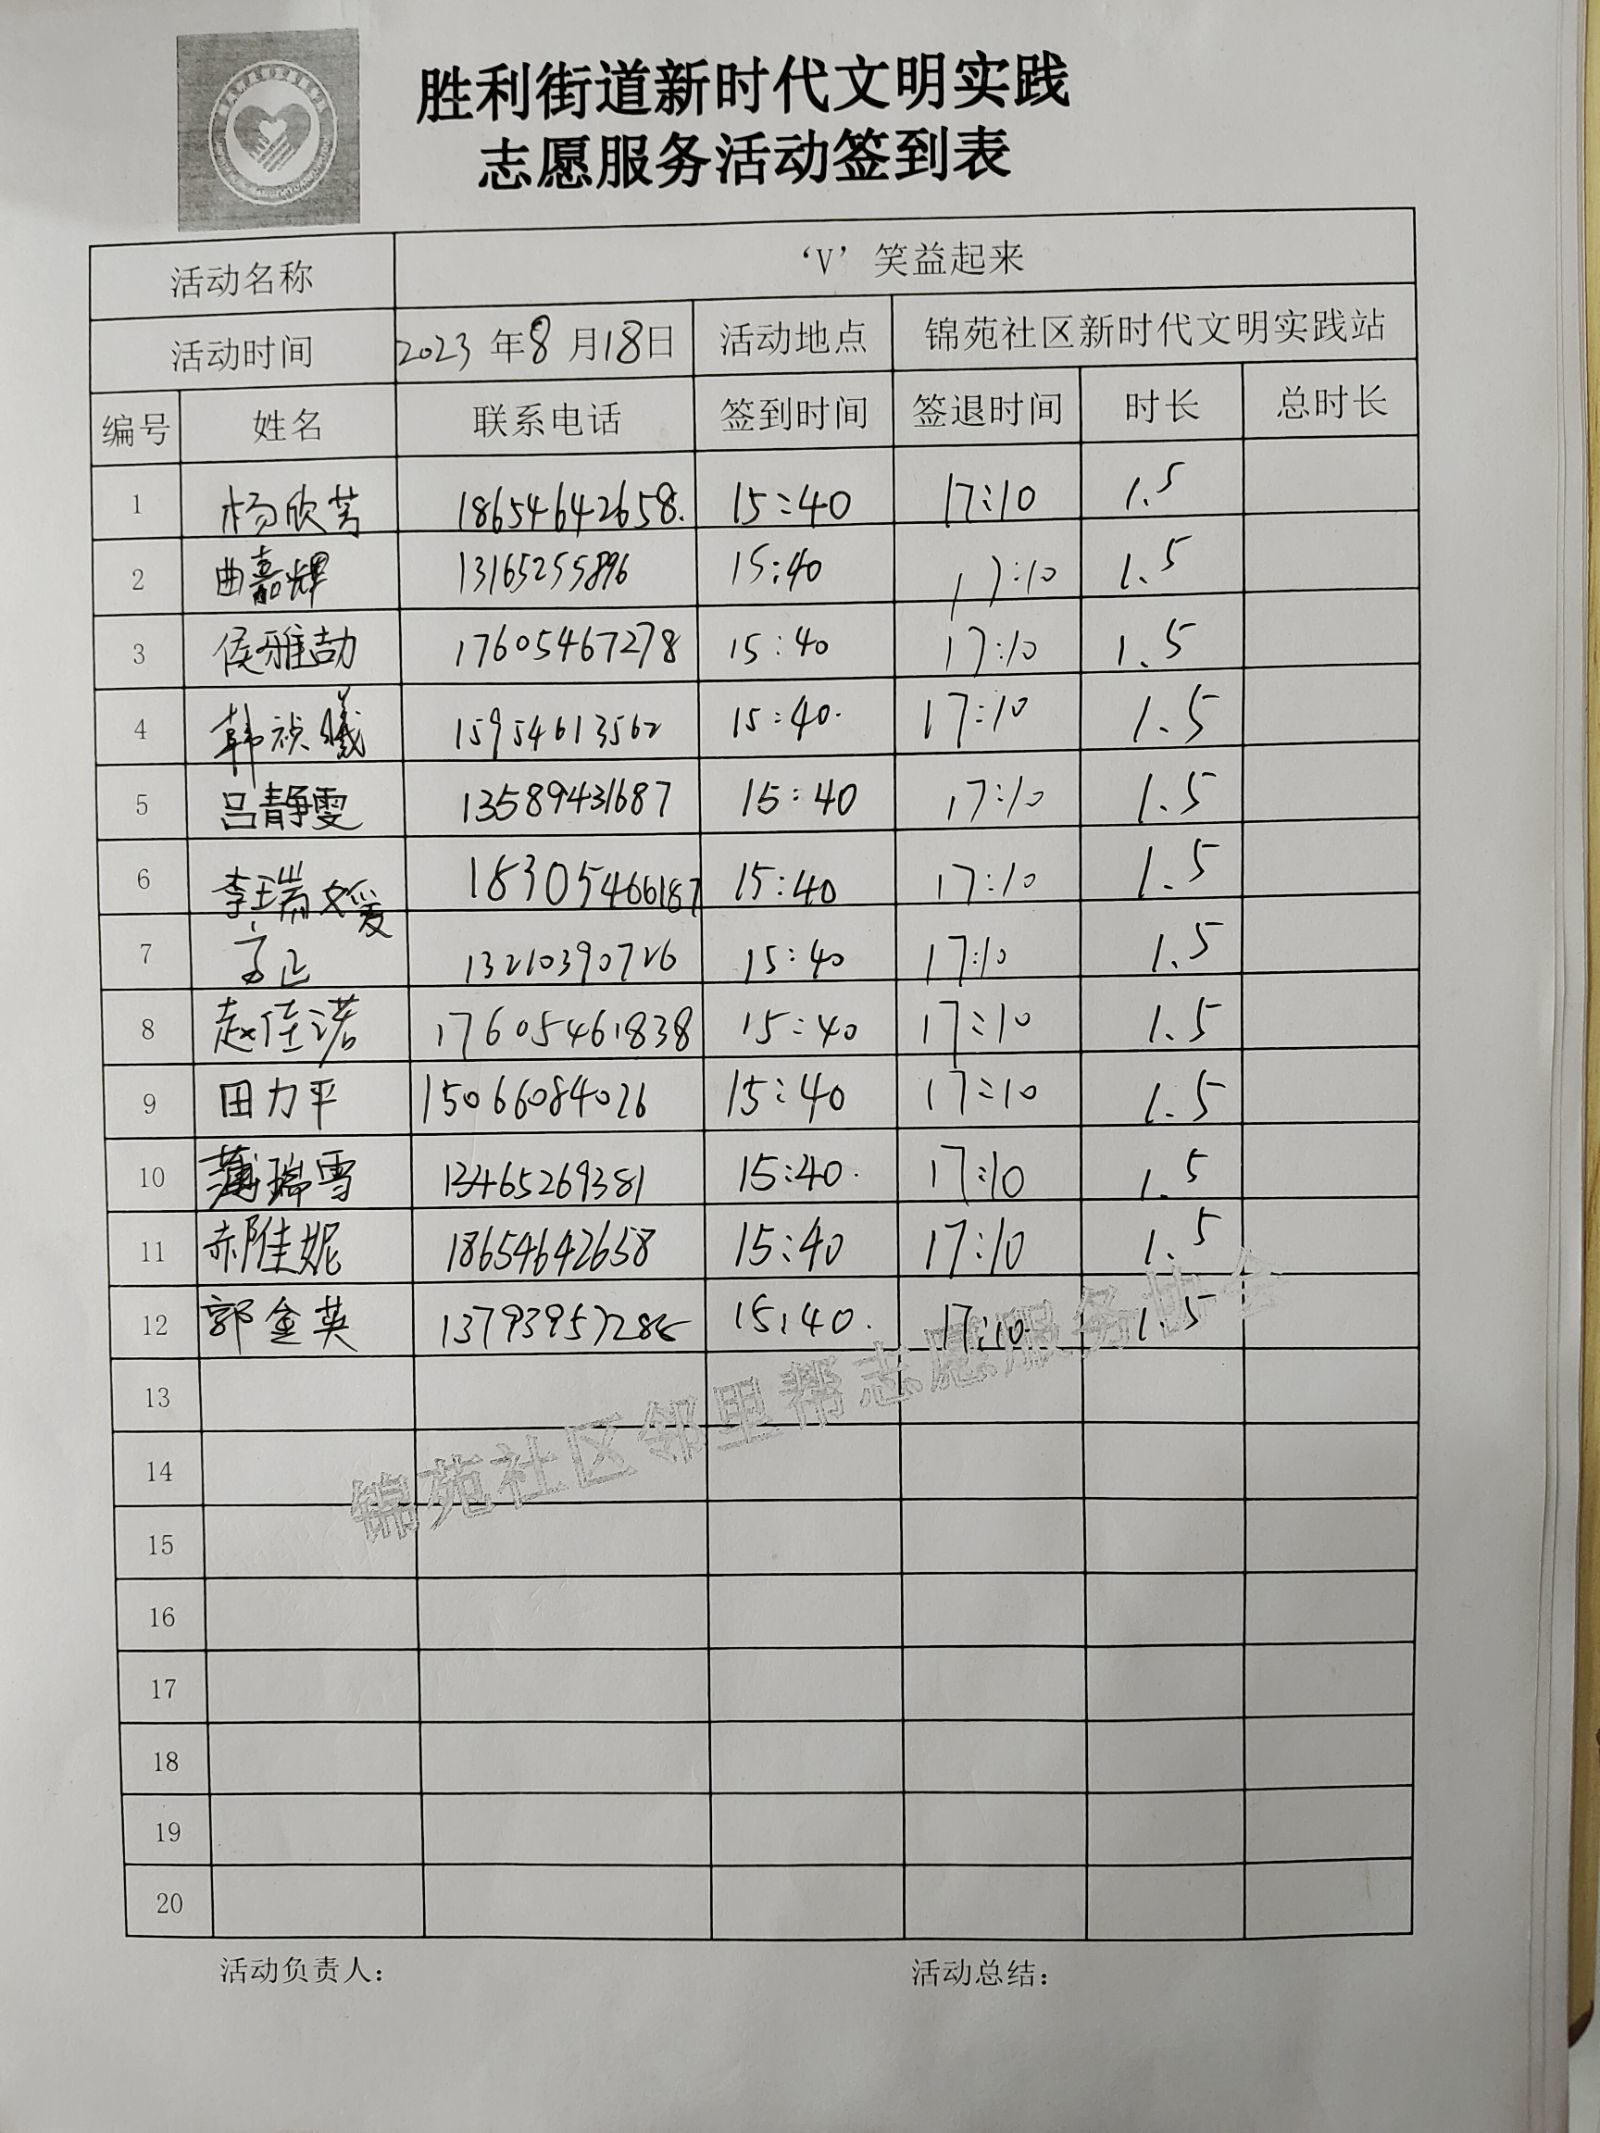 胜利街道新时代文明实践
志愿服务活动签到表
活动名称 ‘V’笑益起来
活动时间 2023年8月18日 活动地点 锦苑社区新时代文明实践站
编号 姓名 联系电话 签到时间 签退时间 时长 总时长
1 杨欣芳 18654642658. 15:40 17:10 1.5
2 曲嘉辉 13165255896 15:40 17:10 1.5
3 侯雅劼 17605467278 15:40 17:10 1.5
4 韩祯曦 15954613562 15:40. 17:10 1.5
5 吕静雯 13589431687 15:40 17:10 1.5
6 李瑞媛 18305466187 15:40 17:10 1.5
7 高正 13210390726 15:40 17:10 1.5
8 赵佳诺 17605461838 15:40 17:10 1.5
9 田力平 15066084026 15:40 17:10 1.5
10 薄瑞雪 13465269381 15:40. 17:10 1.5
11 郝佳妮 18654642658 15:40 17:10 1.5
12 郭金英 13793957286 15:40. 17:10. 1.5
13
14
15
16
17
18
19
20
锦苑社区邻里帮志愿服务协会
活动负责人: 活动总结: